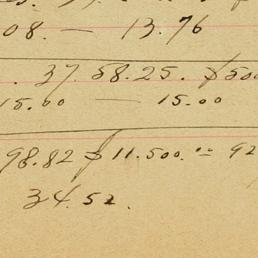 08. — 13.76
. 37.58.25. $500
15.00 — 15.00
98.82 $11.500.00 92
34.52.